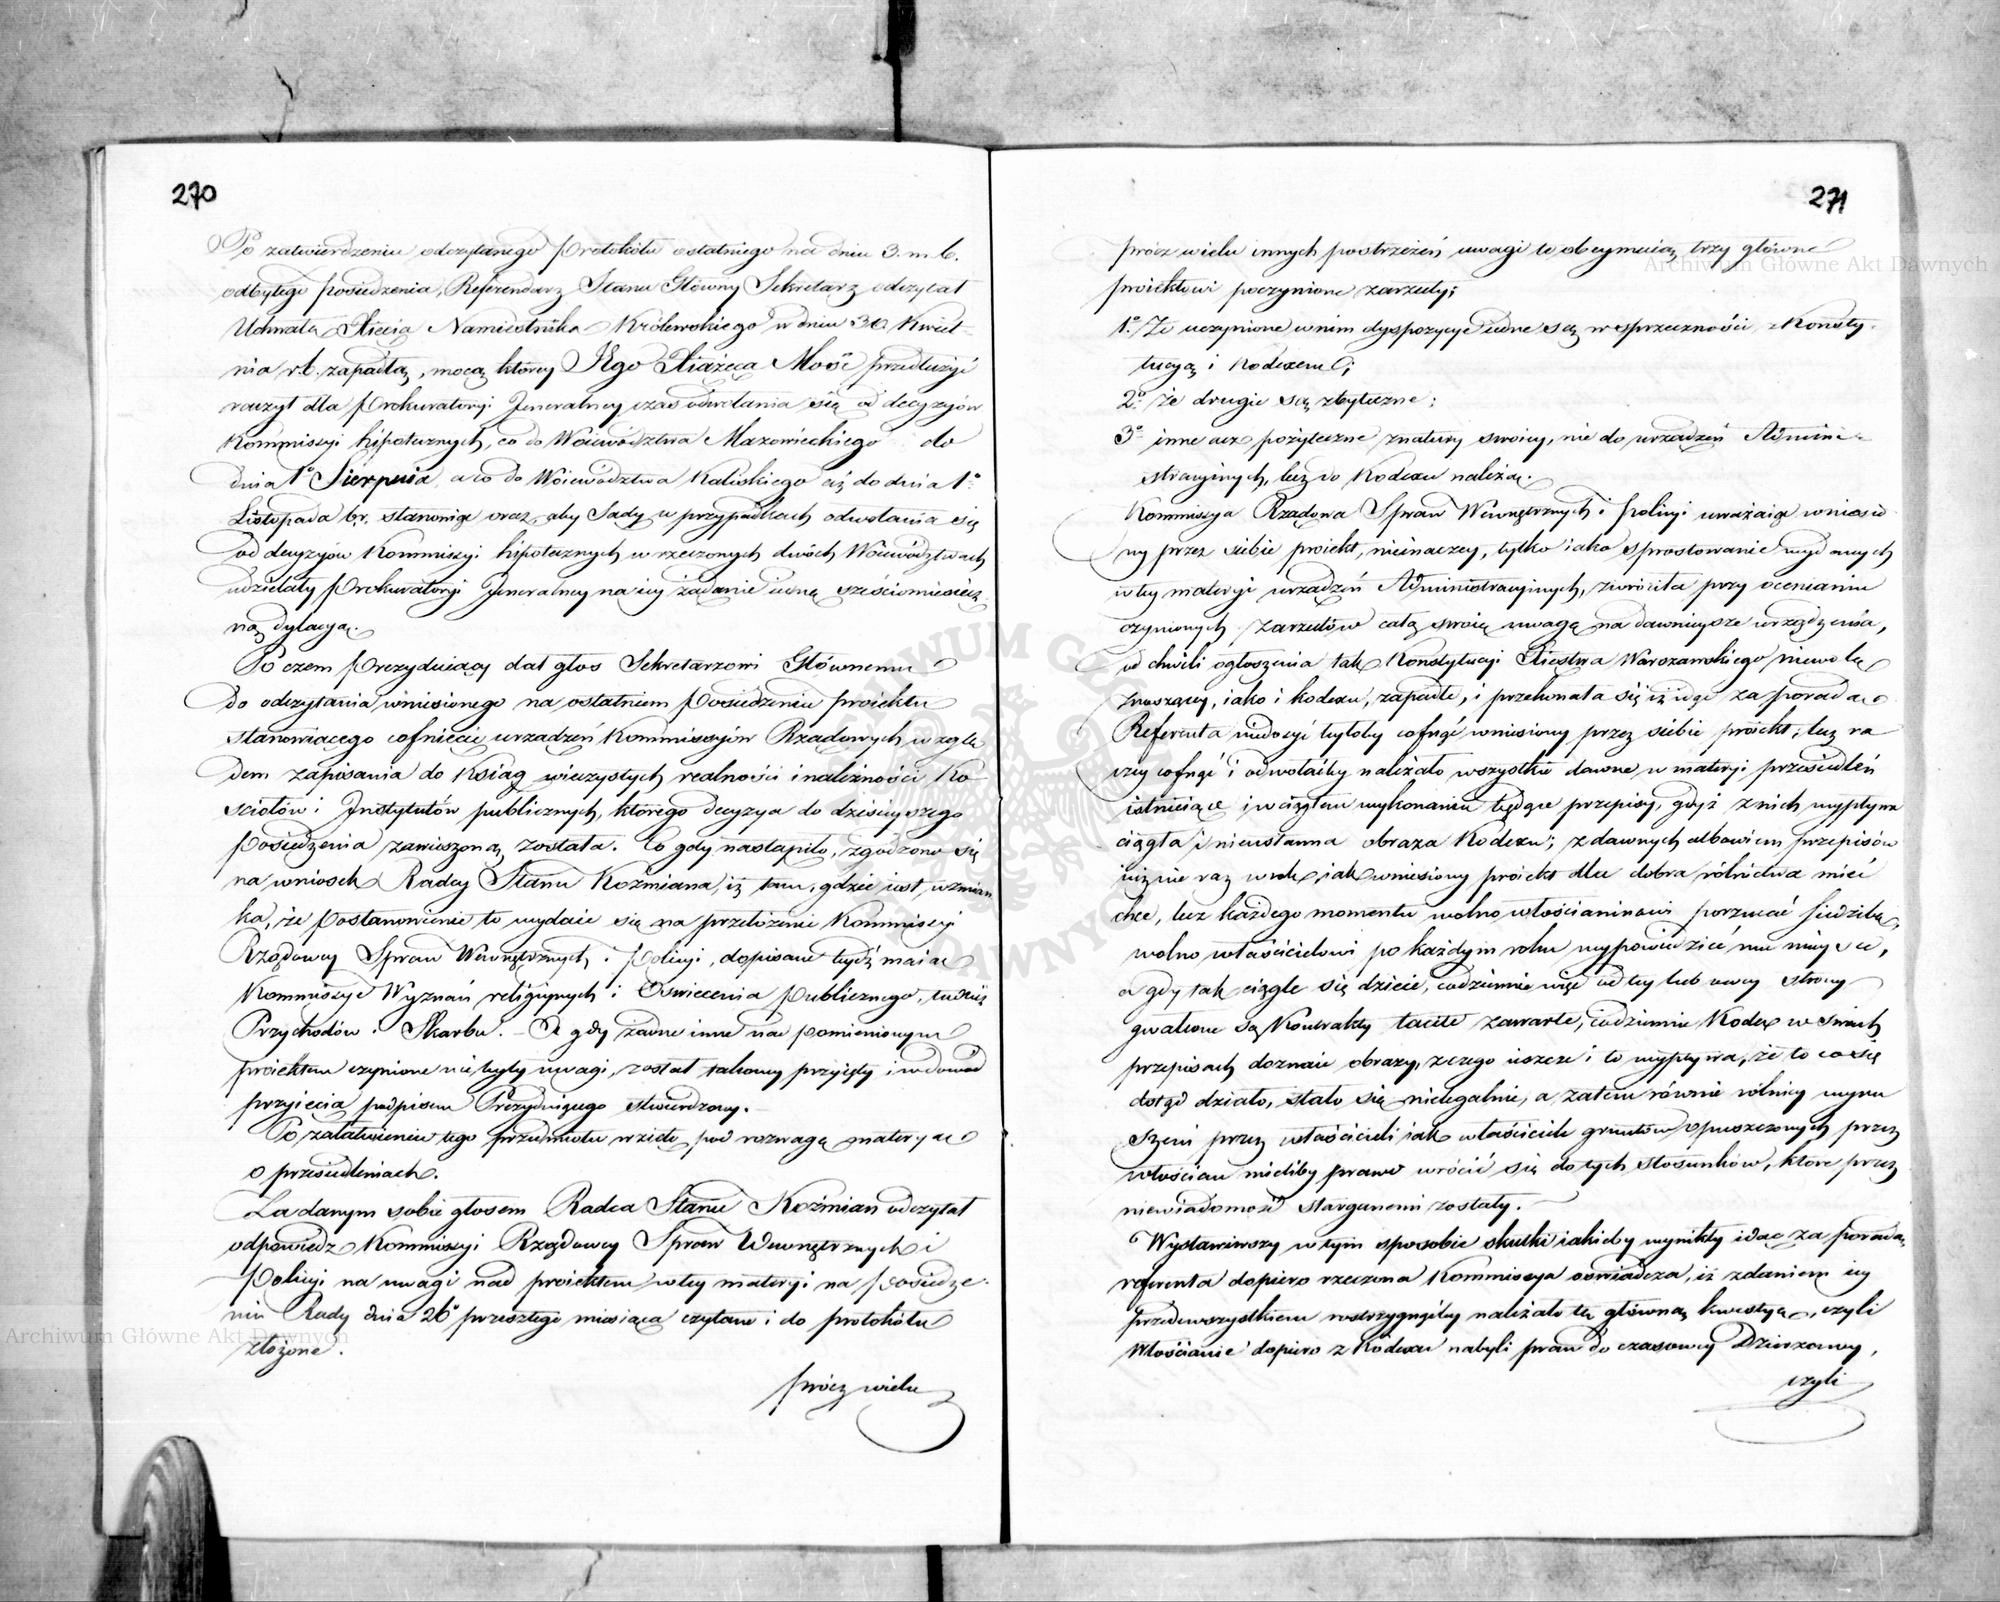 270
Po zatwierdzeniu odczytanego Protokółu ostatniego na dniu 3. m. b.
odbytego posiedzenia, Referendarz Stanu Główny Sekretarz odczytał
Uchwałę Xięcia Namiestnika Królewskiego w dniu 30 Kwiet-
nia r.b. zapadłą, mocą którey Jego Xiążęca Mość przedłużyć
raczył dla Prokuratoryi Jeneralney czas odwołania się od decyzyów
Kommissyi hipotecznych, co do Woiewództwa Mazowieckiego do
dnia 1º Sierpnia, a co do Woiewództwa Kaliskiego aż do dnia 1º
Listopada br. stanowiąc oraz, aby Sądy w przypadkach odwołania się
od decyzyów Kommissyi hipotecznych w rzeczonych dwóch Woiewództwach
udzielały Prokuratoryi Jeneralney na iey żądanie iedną sześciomiesięcz
ną dylacyą.
Po czem Prezyduiący dał głos Sekretarzowi Głównemu
do odczytania wniesionego na ostatniem Posiedzeniu proiektu
stanowiącego cofnięcie urządzeń Kommissyów Rządowych wzglę
dem zapisania do Ksiąg wieczystych realności i należności Ko-
sciołów i Instytutów publicznych, którego decyzya do dzisieyszego
Posiedzenia zawieszoną została. Co gdy nastąpiło, zgodzono się
na wniosek Radcy Stanu Koźmiana, iż tam, gdzie iest wzmian
ka, że Postanowienie to wydaie się na przełożenie Kommissyi
Rządowey Spraw Wewnętrznych i Policyi, dopisane bydź maią
Kommissye Wyznań religiynych i Oświecenia Publicznego, tudzież
Przychodów i Skarbu. - A gdy żadne inne nad pomienionym
proiektem czynione nie były uwagi, został takowy przyięty i w dowód
przyięcia podpisem Prezyduiącego stwierdzony.
Po załatwieniu tego przedmiotu wzięto pod rozwagę materyą
o przesiedleniach.
Za danym sobie głosem Radca Stanu Koźmian odczytał
odpowiedź Kommissyi Rządowey Spraw Wewnętrznych i
Policyi na uwagi nad proiektem w tey materyi na posiedze-
niu Rady dnia 26º przeszłego miesiąca czytane i do protokółu
złożone.
prócz wielu
271
prócz wielu innych postrzeżeń uwagi te obeymuią trzy główne
proiektowi poczynione zarzuty;
1º Że uczynione w nim dyspozycye iedne są w sprzeczności z Konsty-
tucyą i Kodexem;
2º że drugie są zbyteczne;
3º inne acz pożyteczne z natury swoiey, nie do urządzeń Admini-
stracyinych, lecz do Kodexu należą.
Kommissya Rządowa Spraw Wewnętrznych i Policyi uważaiąc wniesio
ny przez siebie proiekt, nieinaczey, tylko iako sprostowanie wydanych
w tey materyi urządzeń Administracyinych, zwróciła przy ocenianiu
czynionych zarzutów całą swoię uwagę na dawnieysze urządzenia,
od chwili ogłoszenia tak Konstytucyi Xięstwa Warszawskiego niewolę
znoszącey, iako i kodexu, zapadłe, i przekonała się iż idąc za poradą
Referenta niedosyć byłoby cofnąć wniesiony przez siebie proiekt; lecz ra
czey cofnąć i odwołaćby należało wszystkie dawne w materyi przesiedleń
istnieiące i w ciągłem wykonaniu będące przepisy, gdyż z nich wypływa
ciągła i nieustanna obraza Kodexu; z dawnych albowiem przepisów
iuż nie raz w rok, iak wniesiony proiekt dla dobra rolnictwa mieć
chce, lecz każdego momentu wolno włościaninowi porzucać siedzibę,
wolno właścicielowi po każdym roku wypowiedzieć mu mieysce,
a gdy tak ciągle się dzieie, codziennie więc od tey lub owey strony
gwałcone są Kontrakty tacite zawarte, codziennie Kodex w swoich
przepisach doznaie obrazy, z czego ieszcze i to wypływa, że to co się
dotąd działo, stało się nielegalnie, a zatem równie rolnicy wynie
szeni przez właścicieli iak właściciele gruntów opuszczonych przez
włościan mieliby prawo wrócić się do tych stosunków, które przez
niewiadomość stargnemi zostały.
Wystawiwszy w tym sposobie skutki iakieby wynikły idąc za poradą
referenta dopiero rzeczona Kommissya oswiadcza, iż zdaniem iey
przedewszystkiem rostrzygnąćby należało tę główną kwestyą, czyli
Włościanie dopiero z Kodexu nabyli prawo do czasowey Dzierżawy,
czyli
Archiwum Główne Akt Dawnych
Archiwum Główne Akt Dawnych